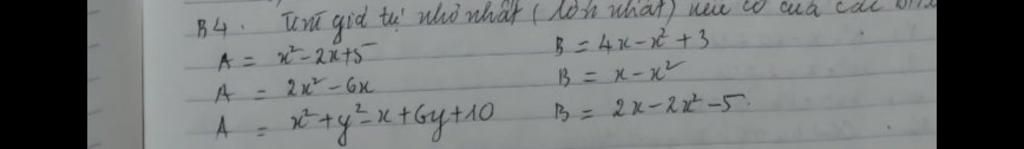 B4. Tìm giá trị nhỏ nhất (lớn nhất) nếu có của các
A = x² - 2x + 5
B = 4x - x² + 3
A = 2x² - 6x
B = x - x²
A = x² + y² - x + 6y + 10
B = 2x - 2x² - 5.